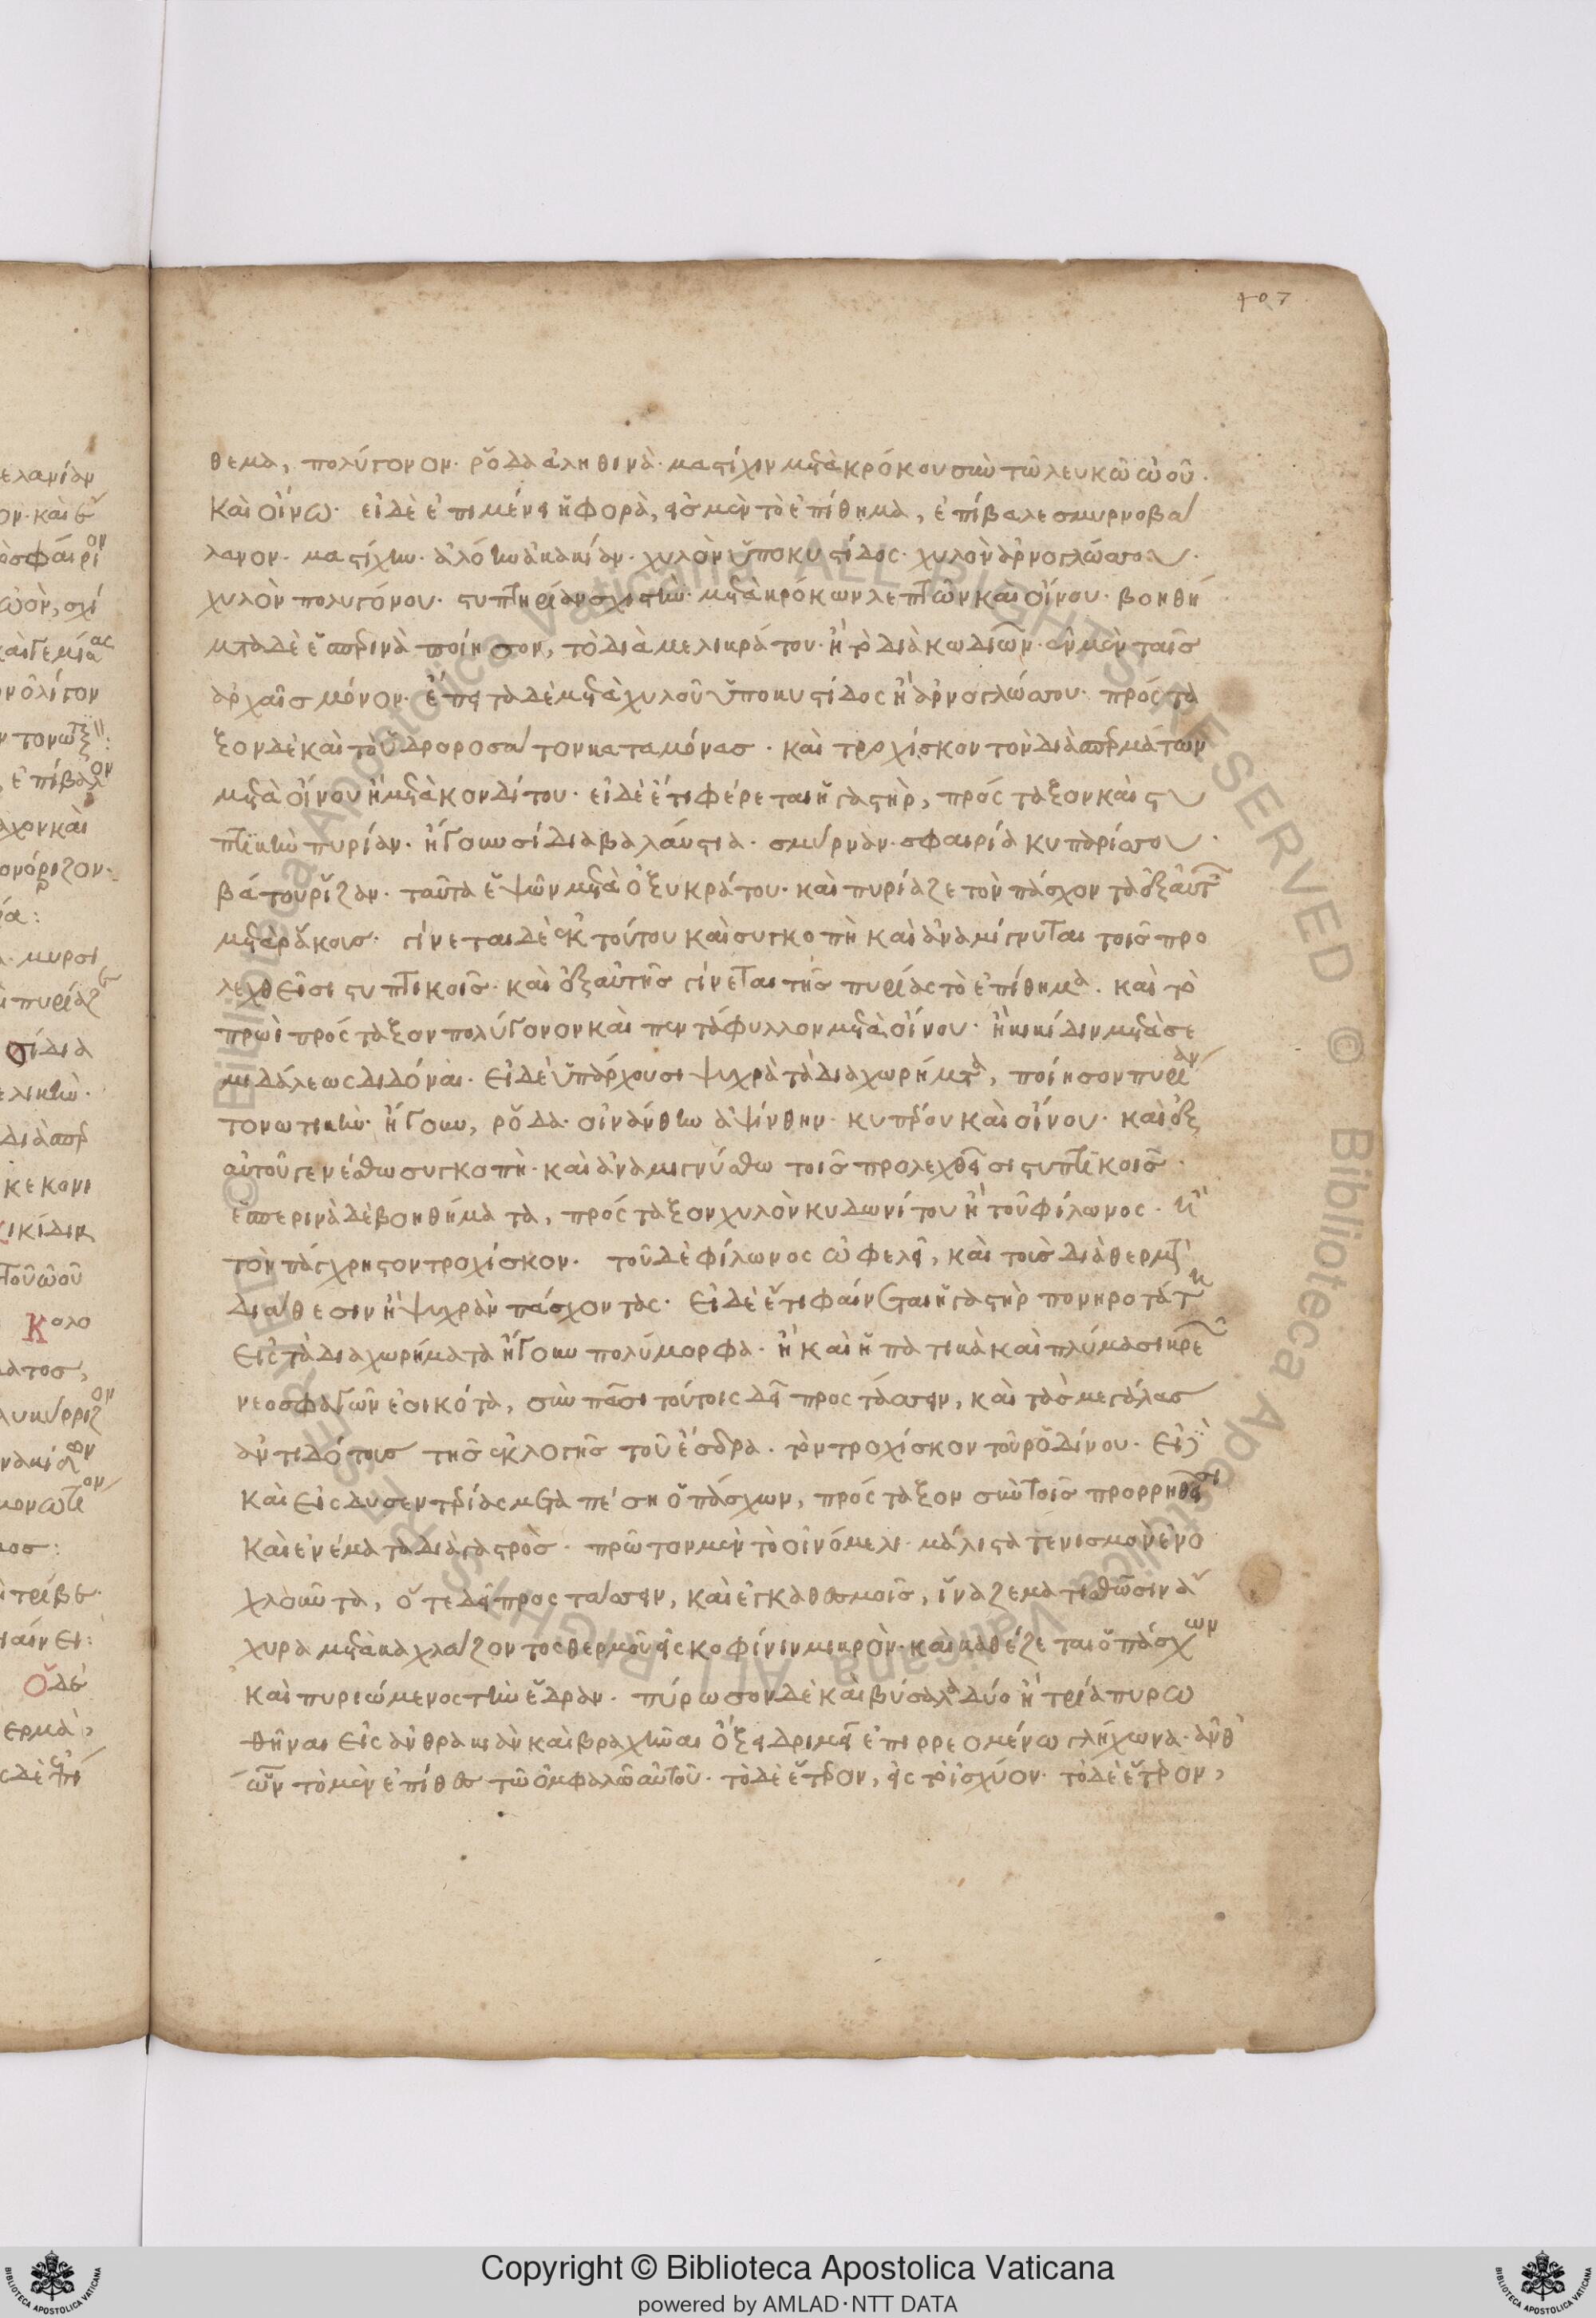 407
θεμα, πολύγονον· ρόδα ἀληθινὰ· μαστίχιν μετὰ κρόκου σὺν τῶ λευκῶ ὠοῦ·
καὶ οἴνω· εἰ δὲ ἐπιμένει ἡ φορὰ, εἰς μὲν τὸ ἐπίθημα, ἐπίβαλε σμυρνοβα
λανον· μαστίχην· ἀλόην ἀκακίαν· χυλὸν ὑποκυστίδος· χυλὸν ἀρνογλώσσου·
χυλὸν πολυγόνου· στυπτηρίαν σχιστὴν· μετὰ κρόκων λεπτῶν καὶ οἴνου· βοηθή
ματα δὲ ἑσπερινὰ ποίησον, τὸ διὰ μελικράτου· ἢ τὸ διὰ κωδιῶν· ἐν μὲν ταῖς
ἀρχαῖς μόνον· ἔπειτα δὲ μετὰ χυλοῦ ὑποκυστίδος ἢ ἀρνογλώσσου· πρόστα
ξον δὲ καὶ τὸ ὑδροροσάτον καταμόνας· καὶ τροχίσκον τὸν διὰ σπερμάτων
μετὰ οἴνου ἢ μετὰ κονδίτου· εἰ δὲ ἔτι φέρεται ἡ γαστὴρ, πρόσταξον καὶ στυ
πτικὴν πυρίαν· ἤγουν σίδια βαλάυστια· σμύρναν· σφαιρία κυπαρίσσου·
βάτου ρίζαν· ταῦτα ἕψων μετὰ ὀξυκράτου· καὶ πυρίαζε τὸν πάσχοντα ἐξ αὐτῶν
μετὰ ράκους· γίνεται δὲ ἐκ τούτου καὶ συγκοπὴ καὶ ἀναμίγνυται τοῖς προ
λεχθεῖσι στυπτικοῖς· καὶ ἐξ αὐτῆς γίνεται τῆς πυρίας τὸ ἐπίθημα· καὶ τὸ
πρωὶ πρόσταξον πολύγονον καὶ πεντάφυλλον μετὰ οἴνου· ἢ κικίδιν μετὰ σε
μιδάλεως διδόναι· εἰ δὲ ὑπάρχουσι ψυχρὰ τὰ διαχωρήματα, ποίησον πυρίαν
τονωτικὴν· ἤγουν, ρόδα· οἰνάνθην ἀψίνθην· κυπέρου καὶ οἴνου· καὶ ἐξ
αὐτοῦ γενέσθω συγκοπὴ· καὶ ἀναμιγνύσθω τοῖς προλεχθεῖσι στυπτικοῖς·
ἑσπερινὰ δὲ βοηθήματα, πρόσταξον χυλὸν κυδωνίτου ἢ τοῦ φίλωνος· ἢ
τὸν πάγχρηστον τροχίσκον· τοῦ δὲ φίλωνος ὠφελεῖ, καὶ τοῖς διὰ θερμὴν
διάθεσιν ἢ ψυχρὰν πάσχοντας· εἰ δὲ ἔτι φαίνεται ἡ γαστὴρ πονηροτάτη
εἰς τὰ διαχωρήματα ἤγουν πολύμορφα· ἢ καὶ ἡπατικὰ καὶ πλύμασι κρεῶν
νεοσφαγῶν ἐοικότα, σὺν πᾶσι τούτοις δεῖ προστάσσειν, καὶ τὰς μεγάλας
ἀντιδότους τῆς ἐκλογῆς τοῦ ἔσδρα· τὸν τροχίσκον τοῦ ροδίνου· εἰ δὲ
καὶ εἰς δυσεντερίας μετα πέση ὁ πάσχων, πρόσταξον σὺν τοῖς προρρηθεῖσι
καὶ ἐνέματα διὰ γαστρὸς· πρῶτον μὲν τὸ οἰνόμελι· μάλιστα τενισμὸν ἐνο
χλοῦντα, ὅτε δεῖ προστάσσειν, καὶ ἐγκαθισμοῖς, ἵνα ζεματισθῶσιν ἄ
χυρα μετὰ καχλάζοντος θερμοῦ εἰς κοφίνιν μικρὸν· καὶ καθέζεται ὁ πάσχων
καὶ πυριώμενος τὴν ἕδραν· πύρωσον δὲ καὶ βύσαλα δύο ἢ τρία πυρω
θῆναι εἰς ἀνθρακιὰν καὶ βραχῆναι ὄξει δριμεῖ ἐπιρρεομένω γλήχωνα· ἀνθ'
ὧν τὸ μὲν ἐπίθες τῶ ὀμφαλῶ αὐτοῦ· τὸ δὲ ἕτερον, εἰς τὸ ἰσχύον· τὸ δὲ ἕτερον,
© Biblioteca Apostolica Vaticana ALL RIGHTS RESERVED
Copyright © Biblioteca Apostolica Vaticana
powered by AMLAD·NTT DATA